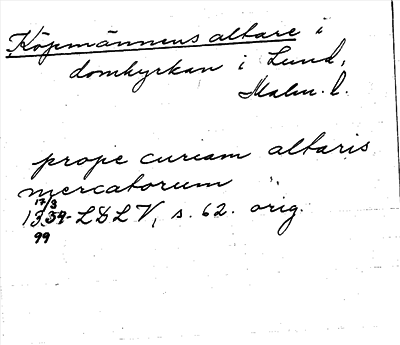 Köpmännens altare i
domkyrkan i Lund,
Malm. l.
prope curiam altaris
mercatorum
17/3
1334 LDLV, s. 62. orig.
99